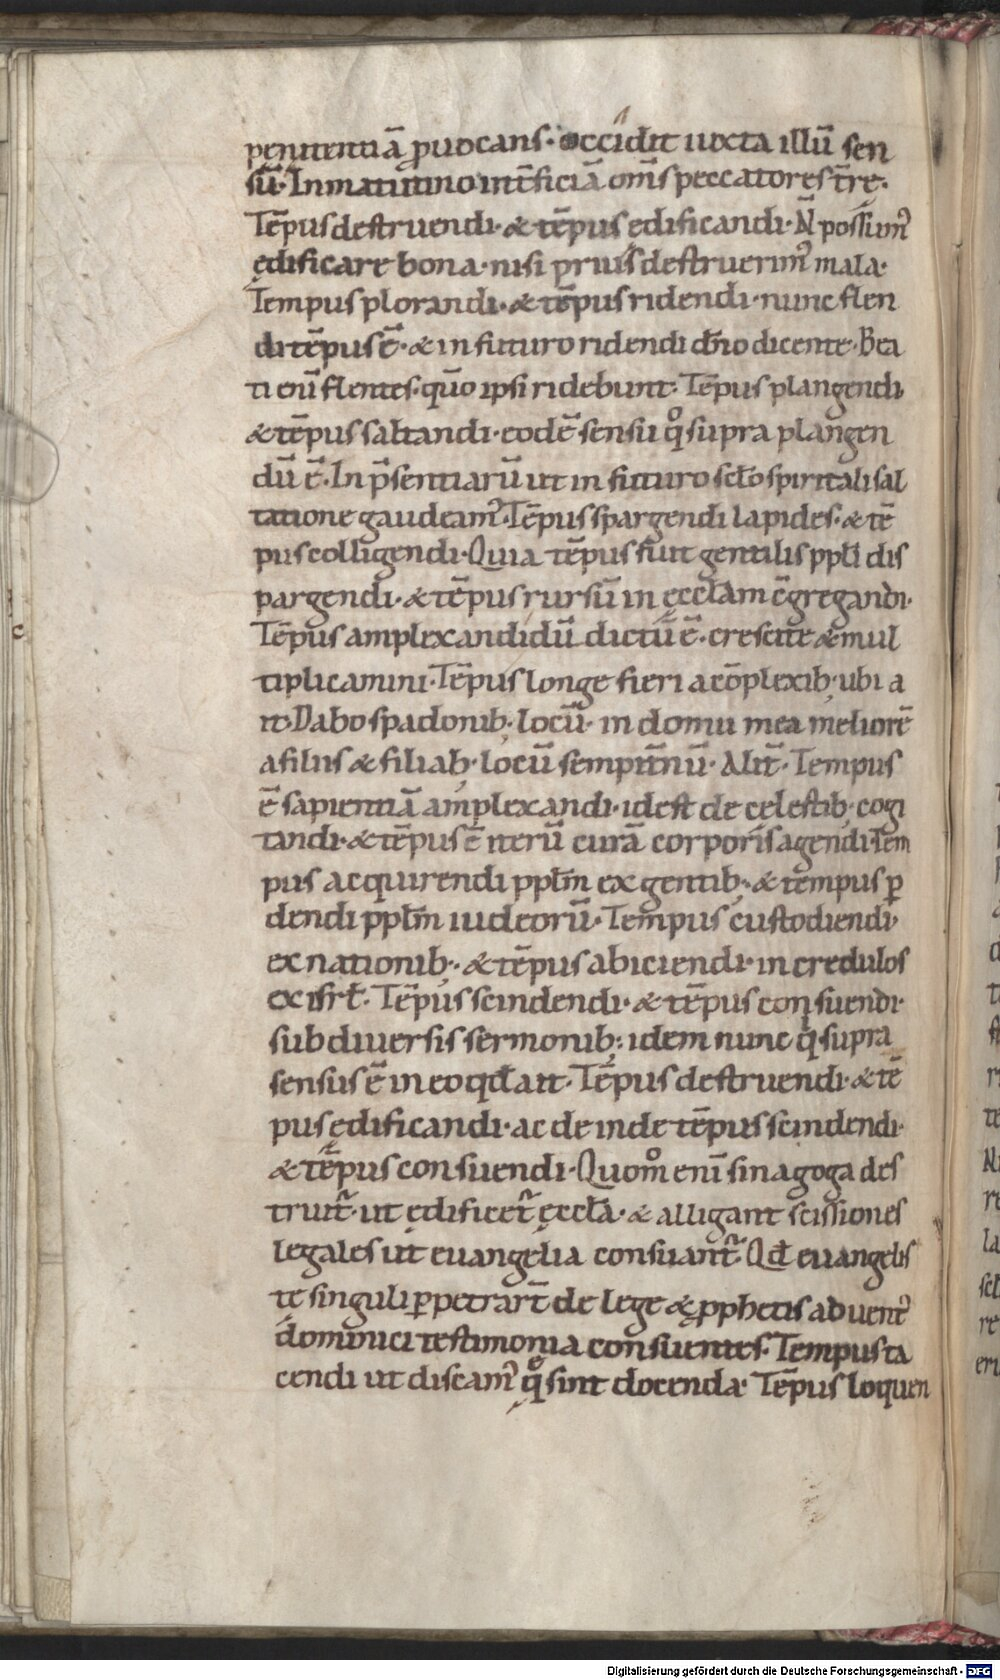 penitentiā ꝓuocans· occidit iuxta illū sen
sū· In matutino int̄ficiā om̄s peccatores t̄rę·
Tēpus destruendi· & tēpus ędificandi· N̄ possumꝰ
ędificare bona· nisi prius destruerimꝰ mala·
Tempus plorandi· & tēpus ridendi· nunc flen
di tēpus ē· & in futuro ridendi dn̄o dicente· Bea
ti enī flentes· qūo ipsi ridebunt· Tēpus plangendi·
& tēpus saltandi· eodē sensu qͦ supra plangen
dū ē· In p̄sentiarū ut in futuro sc̄o spiritali sal
tatione gaudeamꝰ· Tēpus spargendi lapides· & tē
pus colligendi· Quia tēpus fuit gentilis pp̄li dis
pargendi· & tēpus rursū in ęccl̄am c̄gregandi·
Tēpus amplexandi dū dictū ē· crescite & mul
tiplicamini· Tēpus longe fieri a cōplexib; ubi a
it· Dabo spadonib; locū· in domu mea meliorē
a filiis & filiab; locū sempit̄nū· Alit̄· Tempus
ē sapientiā amplexandi· id est de celestib; cogi
tandi· & tēpus ē iterū curā corporis agendi· Tem
pus acquirendi pp̄lm ex gentib; & tempus ꝑ
dendi pp̄lm iudeorū· Tempus custodiendi·
ex nationib; & tēpus abiciendi· incredulos
ex isrl̄· Tēpus scindendi· & tēpus consuendi·
sub diuersis sermonib; idem nunc qͥ supra
sensus ē in eo qd̄ ait· Tēpus destruendi· & tē
pus ędificandi· ac deinde tēpus scindendi·
& tēpus consuendi· Quomͦ enī sinagoga des
truit̄· ut ędificet̄ ęccl̄a· & alligant scissiones
legales ut euangelia consuant̄· Qd̄ euangelis
te singuli ꝑpetrart̄ de lege & ꝓphetis aduentꝰ
dominici testimonia consuentes· Tempus ta
cendi ut discamꝰ qͦ sint docenda· Tēpus loquen
Digitalisierung gefördert durch die Deutsche Forschungsgemeinschaft - DFG